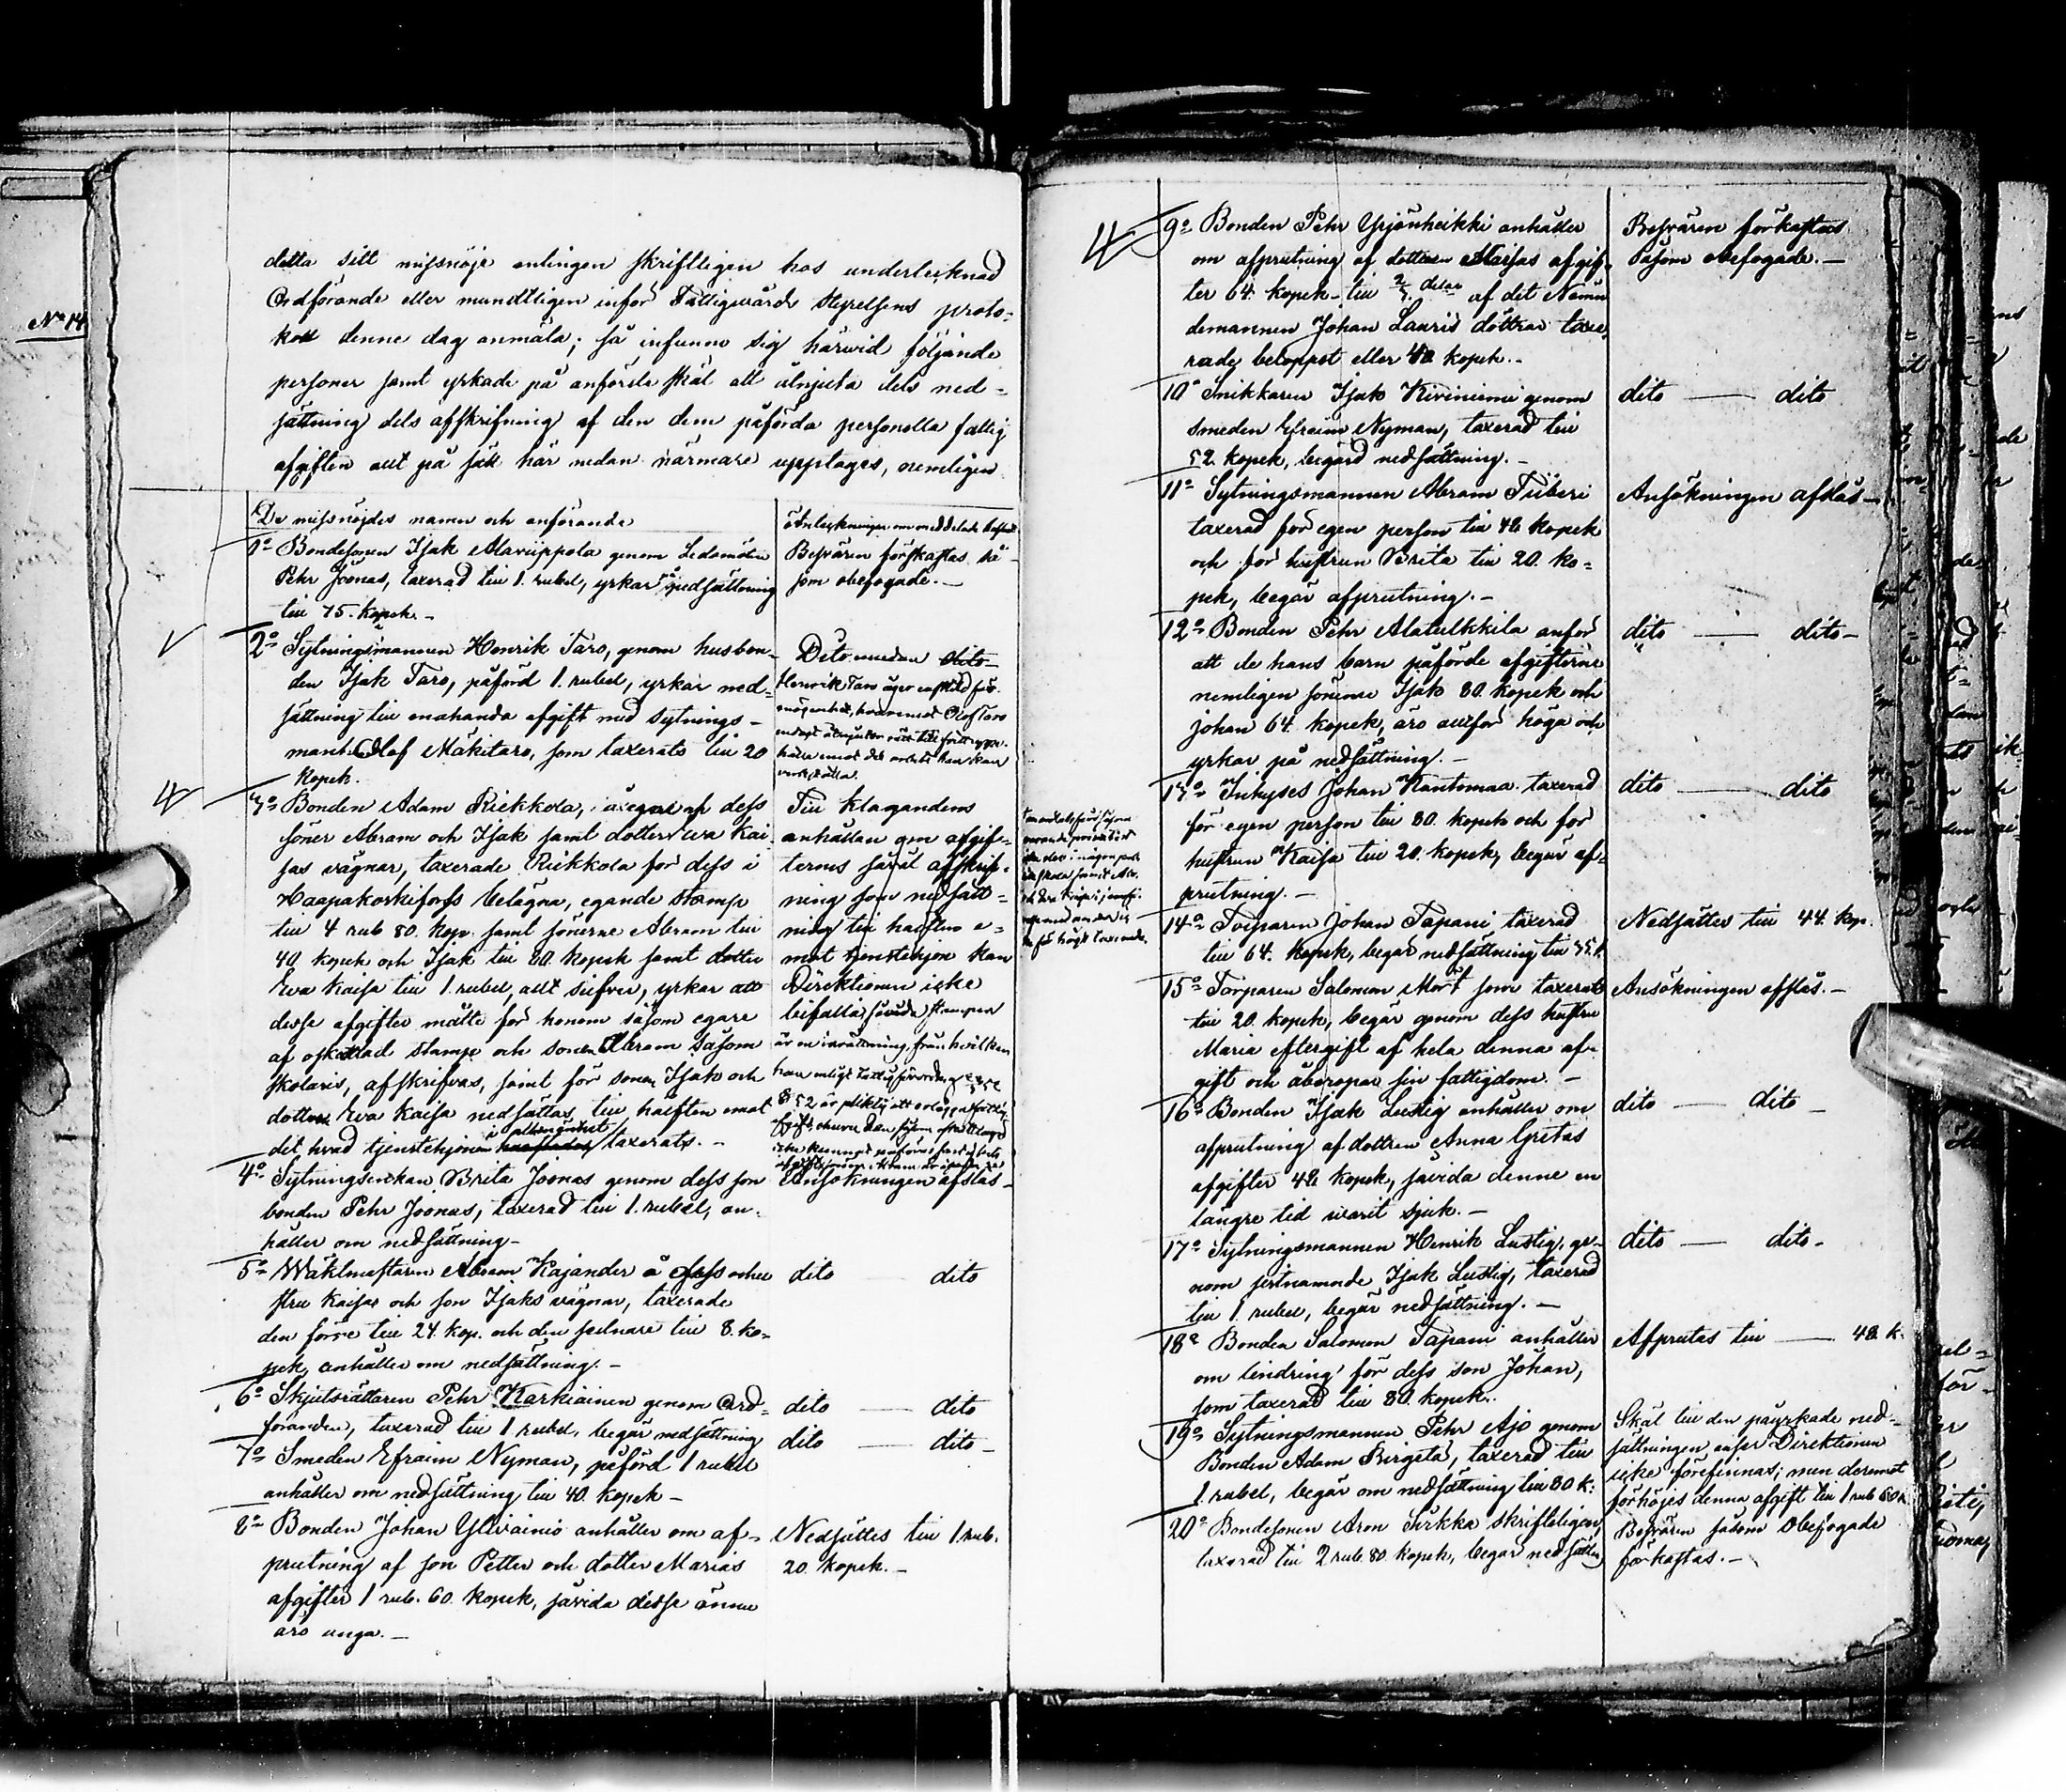 No 14
detta sitt missnöje antingen skriftligen hos undertecknad
Ordförande eller mundtligen inför Fattigvårds styrelsens proto-
koll denne dag anmäla; så infunno sig härwid följande
personer samt yrkade på anförde skäl att åtnjuta dels ned-
sättning dels afskrifning af den dem påförda personella fattig
afgiften allt på sätt här nedan närmare upptages, nemligen
De missnöjdes namn och anförande
1o Bondesonen Isak Alaviippola genom Ledamoten
Pehr Joonas, taxerad till 1. rubel, yrkar nedsättning
till 75. kopek. -
Besvären förkastas så-
som obefogade. -
2o Sytningsmannen Henrik Taro, genom husbon-
den Isak Taro, påförd 1. rubel, yrkar ned-
sättning till enahanda afgift med sytnings-
mannen Olof Mäkitaro, som taxerats till 20
kopek.
Dito emedan dito
Henrik Taro äger enskild för-
mögenhet, hvaremot Olof Taro
endast åtnjuter rätt till fritt uppe-
hälle emot det arbete han kan
verkställa.
3o Bonden Adam Riekkola, i ägenskap af dess
söner Abram och Isak samt dotter Eva Kai-
sas vägnar, taxerade Riekkola för dess i
Haapakoskifors belägna, egande stamp
till 4 rub 80. kop. samt sönerne Abram till
40 kopek och Isak till 80. kopek samt dotter
Eva Kaisa till 1. rubel, allt silfver, yrkar att
desse afgifter måtte för honom såsom egare
af oskattlad stamp och sonen Abram såsom
skolaris, afskrifvas, samt för sonen Isak och
dottren Eva Kaisa nedsättas till hälften emot
det hvad tjenstehjonen i allmänhet taxerats. -
Till klagandens
anhållan om afgif-
ternes såväl afskrif-
ning som nedsätt-
ning till hälften e-
mot tjenstehjon kan
Direktionen icke
bifalla, såvida stampen
är en inrättning, från hvilken
han enligt fattigförordningen
1852 är pligtig att erlägga fattig-
4o Sytningsenkan Brita Joonas genom dess son
bonden Pehr Joonas, taxerad till 1. rubel, an-
håller om nedsättning -
Ansökningen afslås -
5o Waktmästaren Abram Kajander å dess och hu-
stru Kaisas och son Isaks vägnar, taxerade
den förre till 24. kop. och den sednare till 8. ko-
pek, anhåller om nedsättning. -
dito dito
6o Skjutsrättaren Pehr Karkiainen genom Ord-
föranden, taxerad till 1 rubel, begär nedsättning
dito — dito
7o Smeden Efraim Nyman, påförd 1 rubel
anhåller om nedsättning till 40. kopek -
dito — dito -
8o Bonden Johan Ylivainio anhåller om af-
prutning af son Petter och dotter Marias
afgifter 1 rub. 60. kopek, såvida desse ännu
äro unga. -
Nedsättes till 1. rub.
20. kopek. -
9o Bonden Pehr Yrjönheikki anhåller
om afprutning af dottren Maijas afgif-
ter 64. kopek till 2/3 delar af det Nämn-
demannen Johan Lauris döttrar taxe-
rade beloppet eller 40. kopek. -
Besvären förkastas
såsom obefogade. -
10o Snikkaren Isak Kiviniemi genom
smeden Efraim Nyman, taxerad till
52. kopek, begärd nedsättning. -
dito — dito
11o Sytningsmannen Abram Tüberi
taxerad för egen person till 48. kopek
och för hustrun Brita till 20. ko-
pek, begär afprutning. -
Ansökningen afslås -
12o Bonden Pehr Alatulkkila anför
att de hans barn påförde afgifterne
nemligen sönerne Isak 80. kopek och
Johan 64. kopek, äro allför höga och
yrkar på nedsättning. -
dito — dito -
13o Inhyses Johan Kantomaa taxerad
för egen person till 80. kopek och för
hustrun Kaisa till 20. kopek, begär af-
prutning. -
dito — dito
14o Torparen Johan Tapani taxerad
till 64. kopek, begär nedsättning till 35. k.
Nedsättes till 44. kop.
15o Torparen Salomon Mört som taxerats
till 20. kopek, begär genom dess hustru
Maria eftergift af hela denna af-
gift och åberopar sin fattigdom. -
Ansökningen afslås. -
16o Bonden Isak Lustig anhåller om
afprutning af dottren Anna Gretas
afgifter 48. kopek, såvida denne en
längre tid warit sjuk. -
dito — dito -
17o Sytningsmannen Henrik Lustig, ge-
nom sistnämnde Isak Lustig, taxerad
till 1. rubel, begär nedsättning. -
dito — dito -
18o Bonden Salomon Tapani anhåller
om lindring för dess son Johan,
som taxerad till 80. kopek.
Afprutas till — 48. k.
19o Sytningsmannen Pehr Ajo genom
Bonden Adam Birgeta, taxerad till
1. rubel, begär om nedsättning till 80 k:
Skäl till den påyrkade ned-
sättningen anser Direktionen
icke förefinnas; men deremot
förhöjes denna afgift till 1 rub 60 k.
20o Bondesonen Aron Sirkka skrifteligen,
taxerad till 2 rub. 80. kopek, begär nedsättn.
Besvären såsom obefogade
förkastas. -